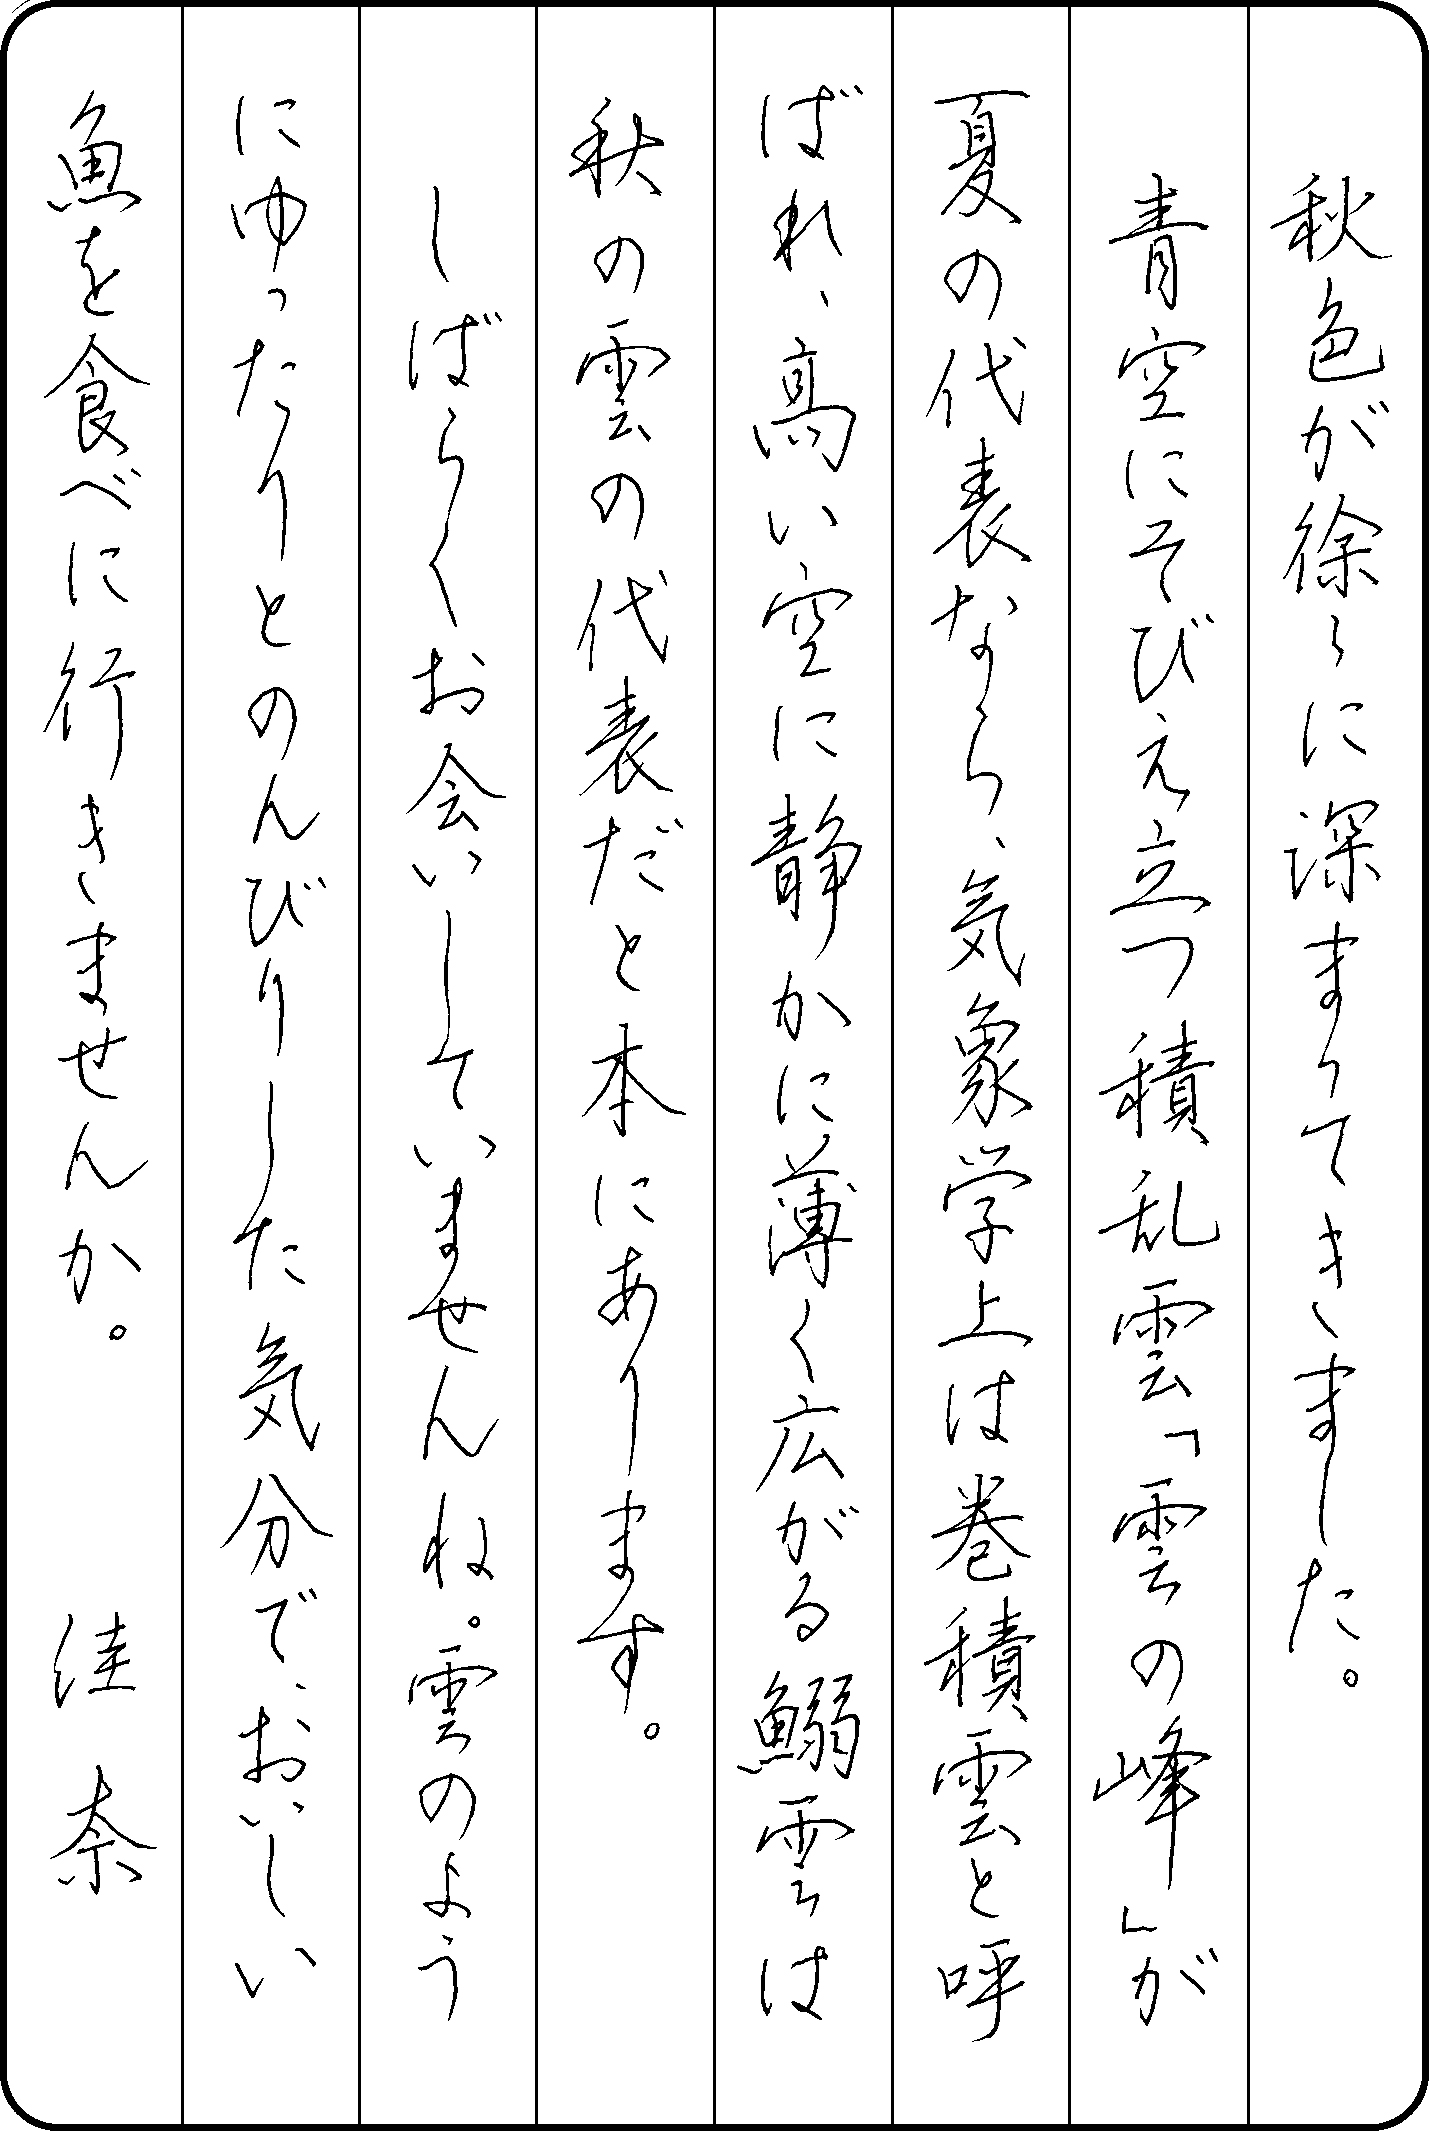 秋色が徐々に深まってきました。
青空にそびえ立つ積乱雲「雲の峰」が
夏の代表なら、気象学上は巻積雲と呼
ばれ、高い空に静かに薄く広がる鰯雲は
秋の雲の代表だと本にあります。
しばらくお会いしていませんね。雲のよう
にゆったりとのんびりした気分で、おいしい
魚を食べに行きませんか。 佳奈